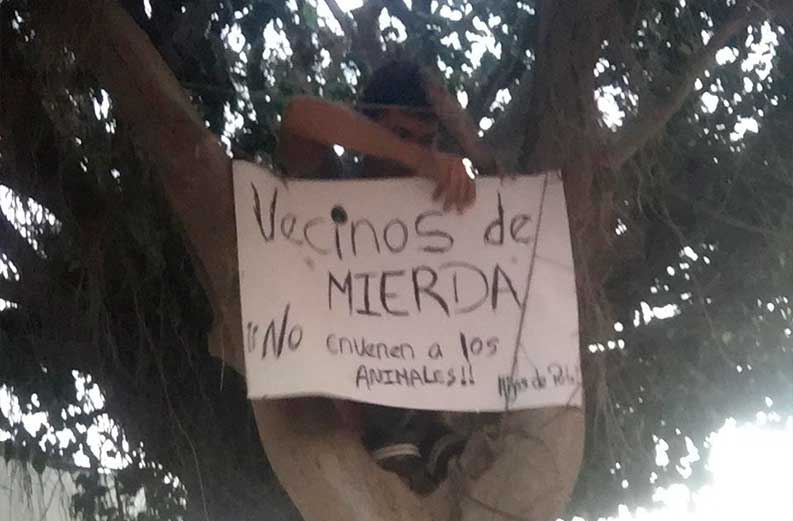 Vecinos de
MIERDA
¡¡NO envenen a los
ANIMALES!!